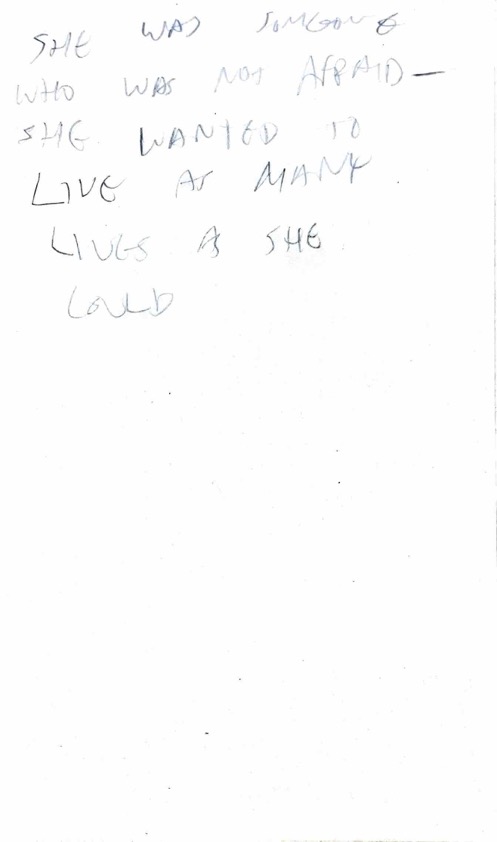 SHE WAS SOMEONE
WHO WAS NOT AFRAID—
SHE WANTED TO
LIVE AS MANY
LIVES AS SHE
COULD